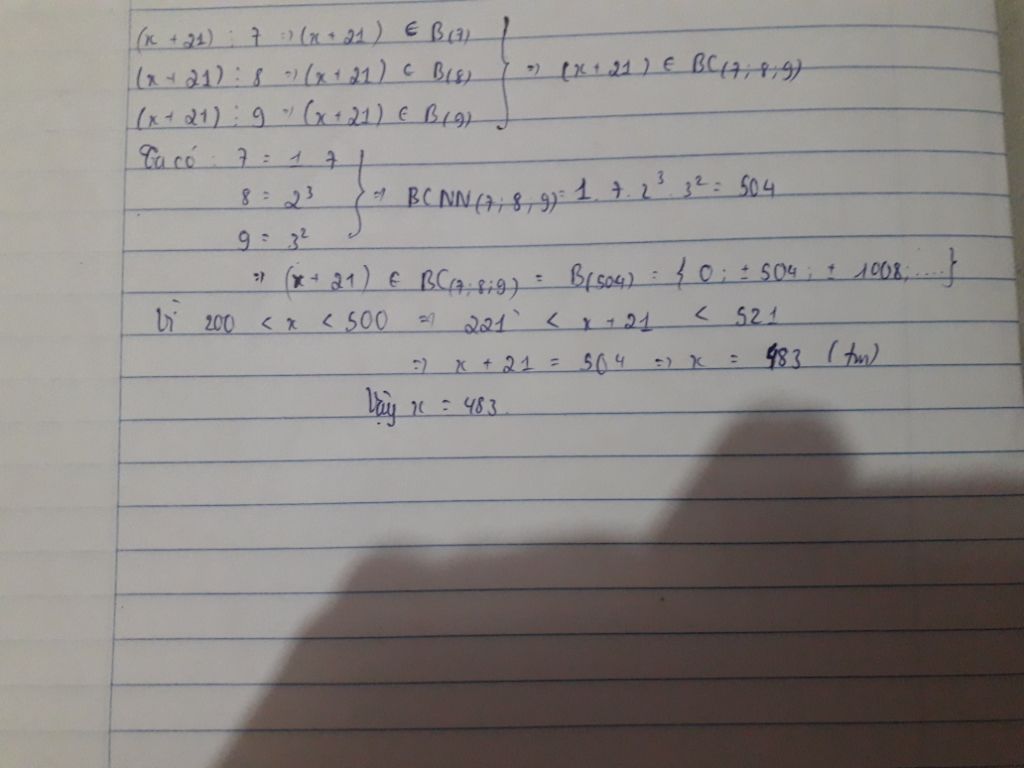 (x + 21) ⋮ 7 ⇒ (x + 21) ∈ B(7)
(x + 21) ⋮ 8 ⇒ (x + 21) ∈ B(8) ⇒ (x + 21) ∈ BC(7; 8; 9)
(x + 21) ⋮ 9 ⇒ (x + 21) ∈ B(9)
Ta có: 7 = 1 . 7
8 = 2³ ⇒ BCNN(7; 8; 9) = 1 . 7 . 2³ . 3² = 504
9 = 3²
⇒ (x + 21) ∈ BC(7; 8; 9) = B(504) = { 0 ; ± 504 ; ± 1008 ; .... }
Vì 200 < x < 500 ⇒ 221 < x + 21 < 521
⇒ x + 21 = 504 ⇒ x = 483 (tm)
Vậy x = 483.